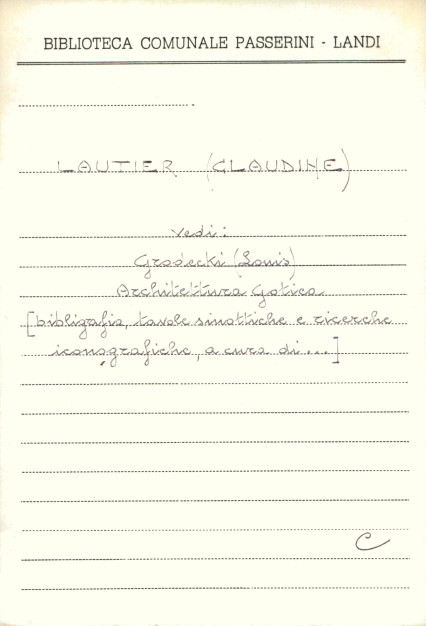 BIBLIOTECA COMUNALE PASSERINI - LANDI
LAUTIER (CLAUDINE)
Vedi:
Grodecki (Louis)
Architettura Gotica
[bibligrafia, tavole sinottiche e ricerche
iconografiche, a cura di ...]
C